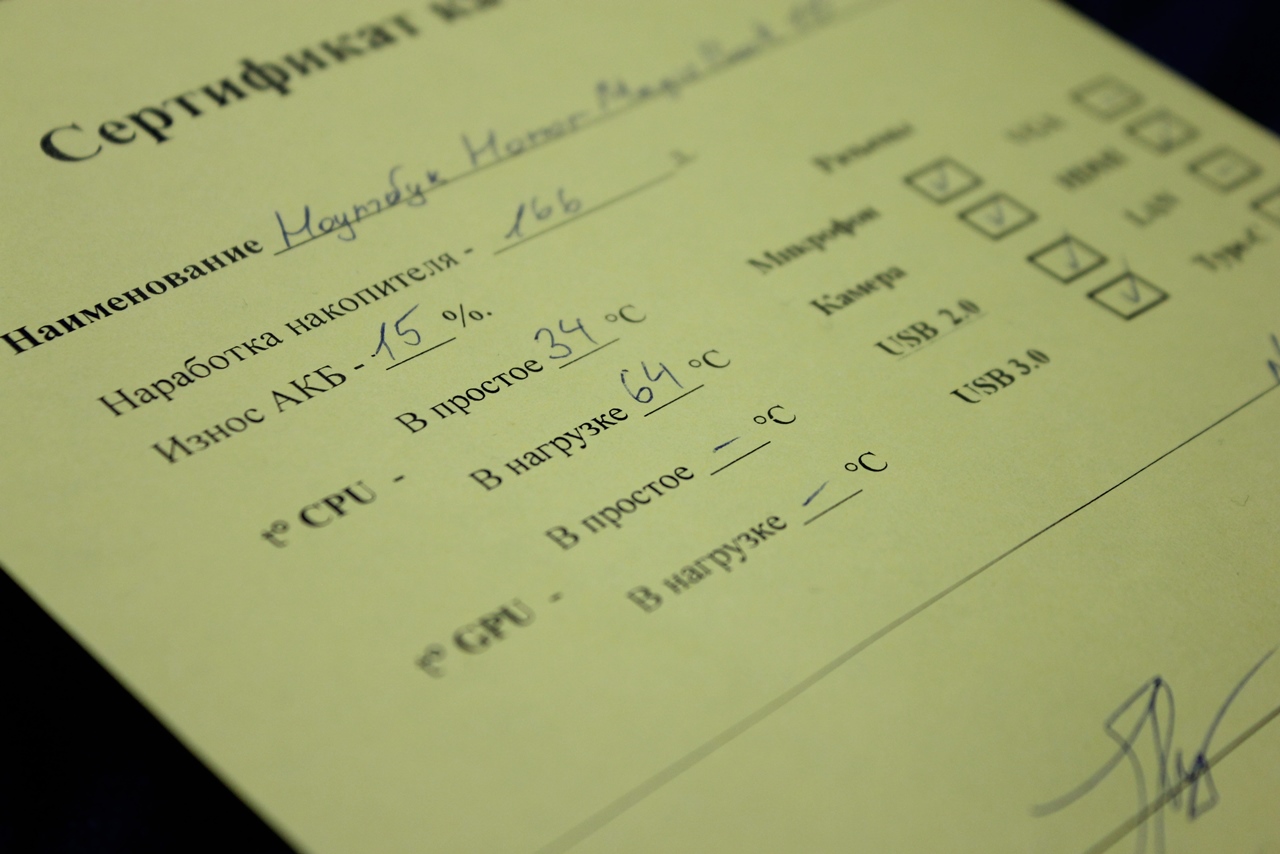 Сертификат
Наименование Ноутбук Honor Magic Book
Наработка накопителя - 166
Износ АКБ - 15 %.
t° CPU - В простое 34 °C
В нагрузке 64 °C
t° GPU - В простое – °C
В нагрузке – °C
Разъемы
Микрофон
Камера
USB 2.0
USB 3.0
HDMI
LAN
Type-C